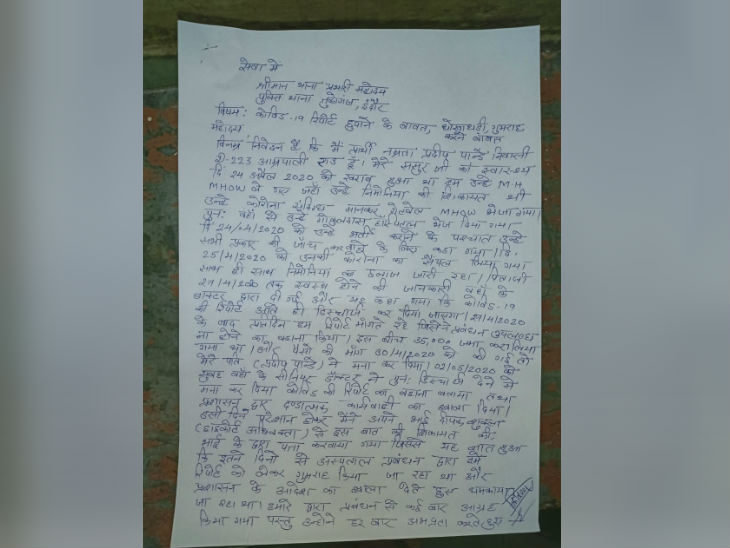 सेवा में
श्रीमान थाना प्रभारी महोदय
पुलिस थाना तुकोगंज, इंदौर
विषय: कोविड-19 रिपोर्ट छुपाने के बाबत, धोखाधड़ी, गुमराह
करने बाबत
महोदय,
विनम्र निवेदन है कि मैं प्रार्थी नम्रता प्रदीप पान्डे निवासी
डी-223 आम्रपाली हूं। मेरे ससुर जी का स्वास्थ्य
दि. 24 अप्रैल 2020 को खराब हुआ था हम उन्हें M.H
MHOW ले गए जहाँ उन्हें निमोनिया की शिकायत थी
उन्हें कोरोना संदिग्ध मानकर MHOW भेजा गया।
पुनः वहाँ से उन्हें गोकुलदास हास्पिटल भेज दिया गया
दि. 24/04/2020 को उन्हें भर्ती करने के पश्चात उन्हें
सभी प्रकार की जाँच करवाने के लिए कहा गया। दि.
25/4/2020 को उनकी कोरोना का सैंपल लिया गया
साथ ही साथ निमोनिया का इलाज जारी रहा। पिताजी
29/4/2020 तक स्वस्थ होने की जानकारी वहाँ के
डॉक्टर द्वारा दी गई और यह कहा गया कि कोविड-19
की रिपोर्ट आते ही डिस्चार्ज कर दिया जाएगा। 29/4/2020
के बाद प्रतिदिन हम रिपोर्ट मांगते रहे जिसे प्रबंधन उपलब्ध
ना होने का बहाना किया। इस बीच 35,000 जमा करा लिया
गया था। और पैसों की मांग 30/4/2020 को की गई तो
मेरे पति (प्रदीप पान्डे) ने मना कर दिया। 02/05/2020 को
सुबह वहाँ के सीनियर डॉक्टर ने पुनः डिस्चार्ज देने से
मना कर दिया कोविड की रिपोर्ट का बहाना बनाया तथा
प्रशासन द्वारा दण्डात्मक कार्यवाही का हवाला दिया।
इसी दिन परेशान होकर मैंने अपने भाई
(हाईकोर्ट अधिवक्ता) से इस बात की शिकायत की।
भाई के द्वारा पता करवाया गया जिससे यह ज्ञात हुआ
कि इतने दिनों से अस्पताल प्रबंधन द्वारा हमें
रिपोर्ट को लेकर गुमराह किया जा रहा था और
प्रशासन के आदेश का हवाला देते हुए धमकाया
जा रहा था। हमारे द्वारा प्रबंधन से कई बार आग्रह
किया गया परन्तु उन्होंने हर बार अभद्रता करते हुए